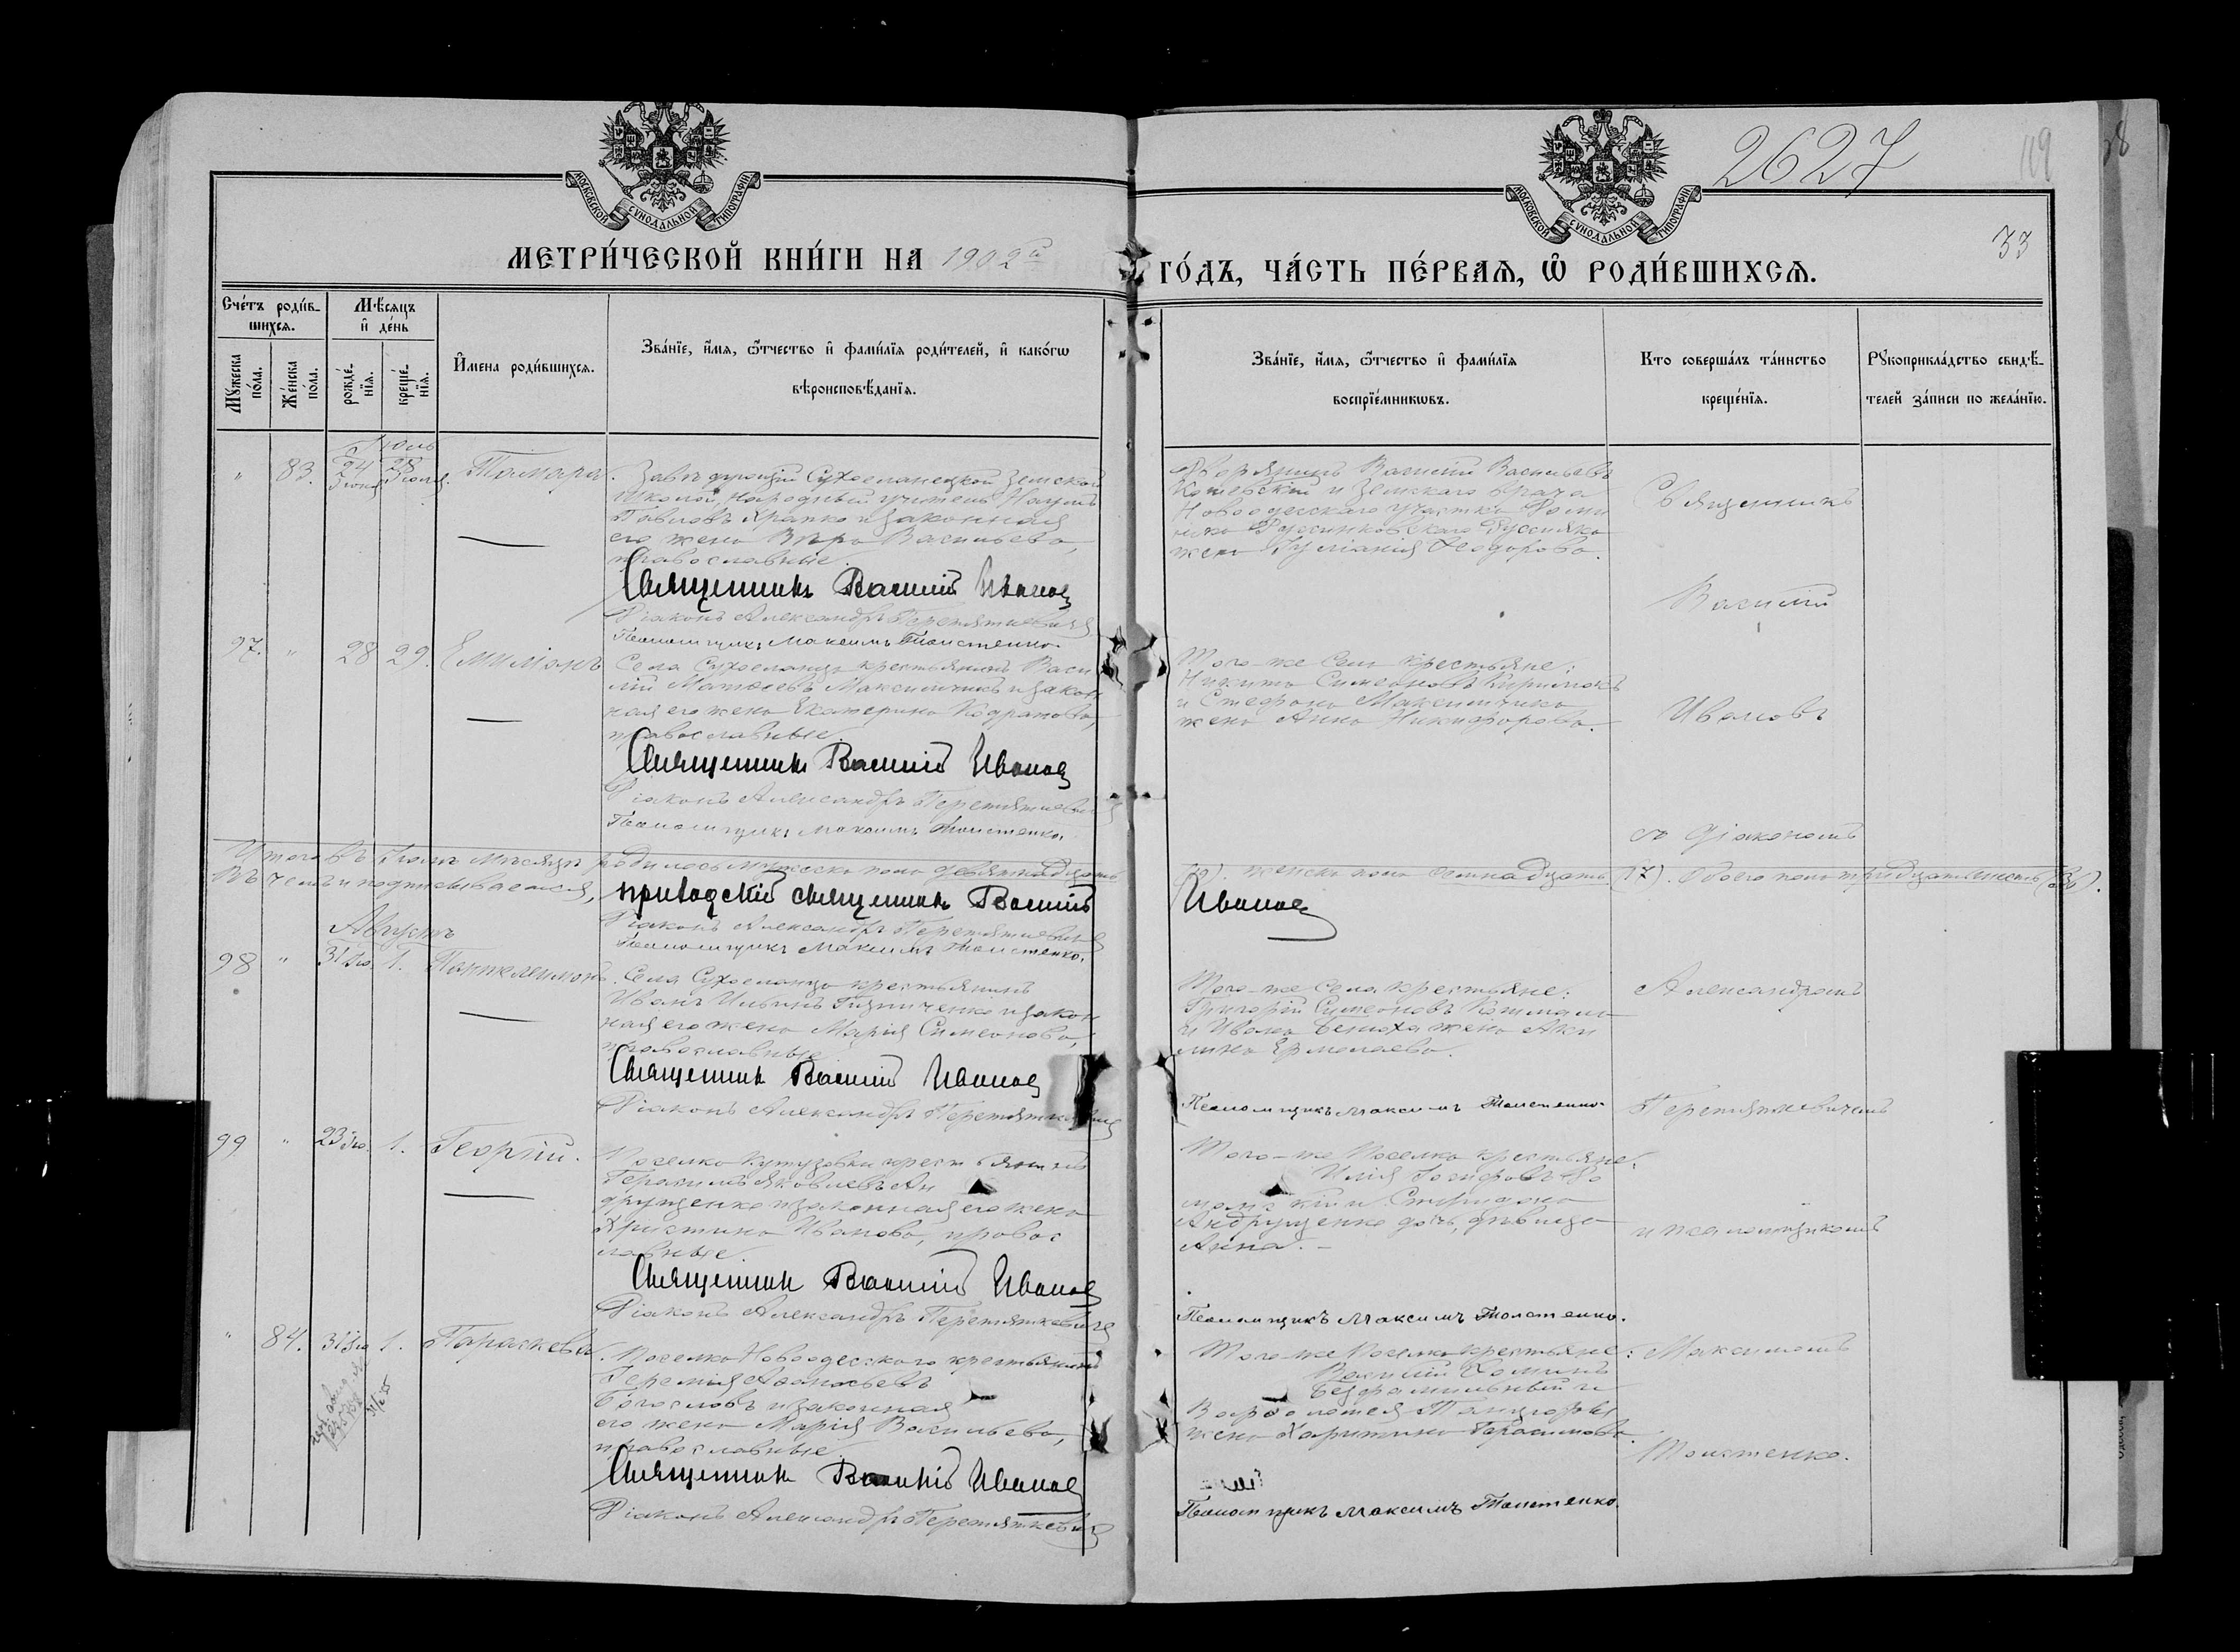 2627
119
38
33
МОСКОВСКОЙ СѴНОДАЛЬНОЙ ТИПОГРАФІИ
МОСКОВСКОЙ СѴНОДАЛЬНОЙ ТИПОГРАФІИ
МЕТРИ́ЧЕСКОЙ КНИ́ГИ НА 1902й ГО́ДЪ, ЧА́СТЬ ПЕ́РВАЯ, Ѿ РОДИ́ВШИХСѦ.
Сче́тъ роди́в-
шихсѧ.
Мѣ́сяцъ
и҆ де́нь
Мꙋ́жеска по́ла.
Же́нска по́ла.
рожде́нїѧ.
креще́нїѧ.
И҆мена роди́вшихсѧ.
Зва́нїе, и҆́мѧ, ѻ҆́тчество и҆ фами́лїѧ роди́телей, и҆ како́гѡ
вѣроисповѣ́данїѧ.
Зва́нїе, и҆́мѧ, ѻ҆́тчество и҆ фами́лїѧ
воспрїе́мникѡвъ.
Кто соверша́лъ та́инство
креще́нїѧ.
Рꙋкоприкла́дство свидѣ́-
телей за́писи по жела́нїю.
Іюль
" 83. 24 28 Тамара.
Завѣдующій Сухоеланецкой Земской
школой, народный учитель Наумъ
Павловъ Храпко и законная
его жена Вѣра Васильева,
православные.
Священникъ Василій Ивановъ
Діаконъ Александръ Перетяткевичъ
Псаломщикъ Максимъ Толстенко.
Дворянинъ Василій Васильевъ
и Земскаго врача
Новоодесскаго участка
жена Феодорова.
Священникъ
Василій
97. " 28 29. Емиліанъ
Села Сухоеланца крестьянинъ Васи
лій Матѳеевъ Максимчукъ и закон
ная его жена Екатерина Кодратова,
православные.
Священникъ Василій Ивановъ
Діаконъ Александръ Перетяткевичъ
Псаломщикъ Максимъ Толстенко.
Того-же Села крестьяне:
Никита Симеоновъ
и Стефана Максимчука
жена Анна Никифорова.
Ивановъ
съ Діакономъ
Итого въ Іюлѣ мѣсяцѣ родилось мужеска пола девятнадцать (19). женска пола семнадцать (17). Обоего пола тридцать шесть (36).
Въ чемъ и подписываемся, приходскій священникъ Василій Ивановъ
Діаконъ Александръ Перетяткевичъ
Псаломщикъ Максимъ Толстенко.
Августъ
98 " 31 Iю. 1. Пантелеимонъ.
Села Сухоеланца крестьянинъ
Иванъ Ильинъ и закон
ная его жена Марія Симеонова,
православные.
Священникъ Василій Ивановъ
Діаконъ Александръ Перетяткевичъ
Того-же Села крестьяне:
Григорій Симеоновъ
и Ивана жена Аки
лина Ермолаева.
Псаломщикъ Максимъ Толстенко.
Александромъ
Перетяткевичемъ
99 " 23 Iю. 1. Георгій.
Поселка Кутузовки крестьянинъ
Герасимъ Яковлевъ Ан
друщенко и законная его жена
Христина Иванова, правос
лавные.
Священникъ Василій Ивановъ
Діаконъ Александръ Перетяткевичъ
Того-же Поселка крестьяне:
Илія Іосифовъ
и Спиридона
Андрущенко дочь, дѣвица
Анна.
Псаломщикъ Максимъ Толстенко.
и псаломщикомъ
" 84. 31 Iю. 1. Параскева.
Поселка Новоодесскаго крестьянинъ
Іеремія Аѳанасьевъ
Богословъ и законная
его жена Марія Васильева,
православные.
Священникъ Василій Ивановъ
Діаконъ Александръ Перетяткевичъ
Того-же Поселка крестьяне:
Василій Ѳоминъ
Безфамильный и
Варѳоломея
жена Харитина Герасимова.
Псаломщикъ Максимъ Толстенко.
Максимомъ
Толстенко.